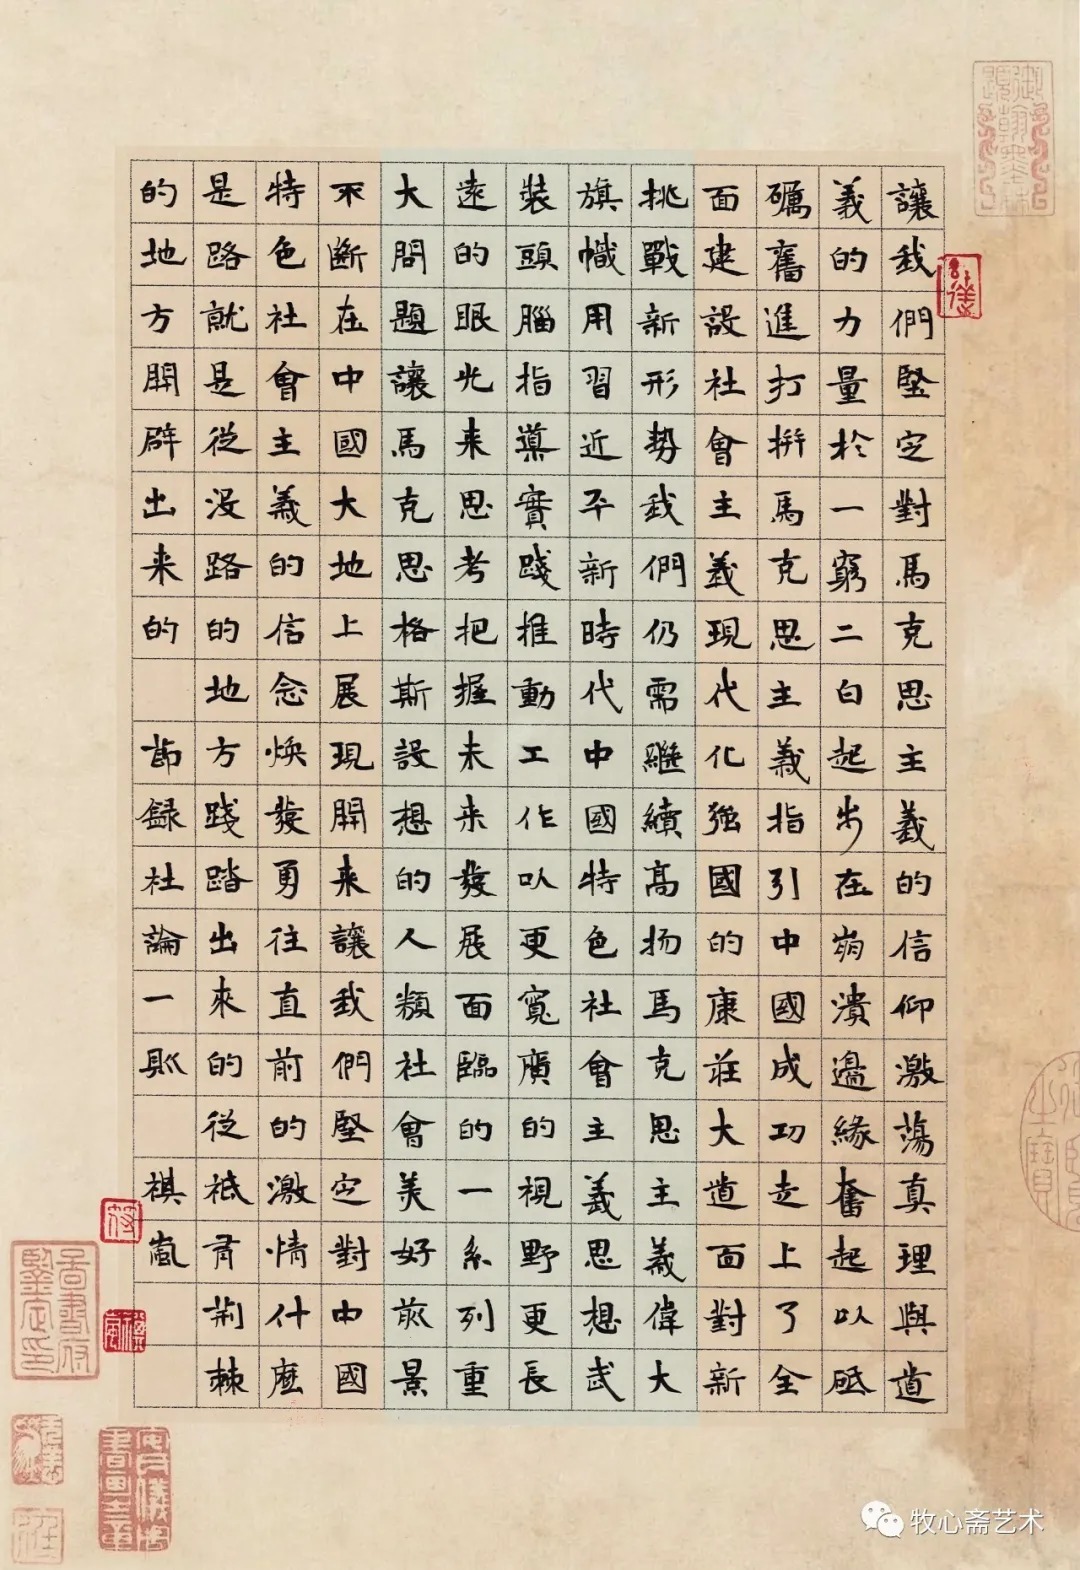 讓我們堅定對馬克思主義的信仰激蕩真理與道
義的力量於一窮二白起步在崩潰邊緣奮起以砥
礪奮進打拚馬克思主義指引中國成功走上了全
面建設社會主義現代化強國的康莊大道面對新
挑戰新形勢我們仍需繼續高扬馬克思主義偉大
旗幟用習近平新時代中國特色社會主義思想武
裝頭腦指導實踐推動工作以更寬廣的視野更長
遠的眼光来思考把握未来發展面臨的一系列重
大問題讓馬克思格斯設想的人類社會美好前景
不斷在中國大地上展現開来讓我們堅定對中國
特色社會主義的信念煥發勇往直前的激情什麼
是路就是從沒路的地方踐踏出來的從祗有荆棘
的地方開辟出来的 節録社論一則 祺嵐
牧心斋艺术